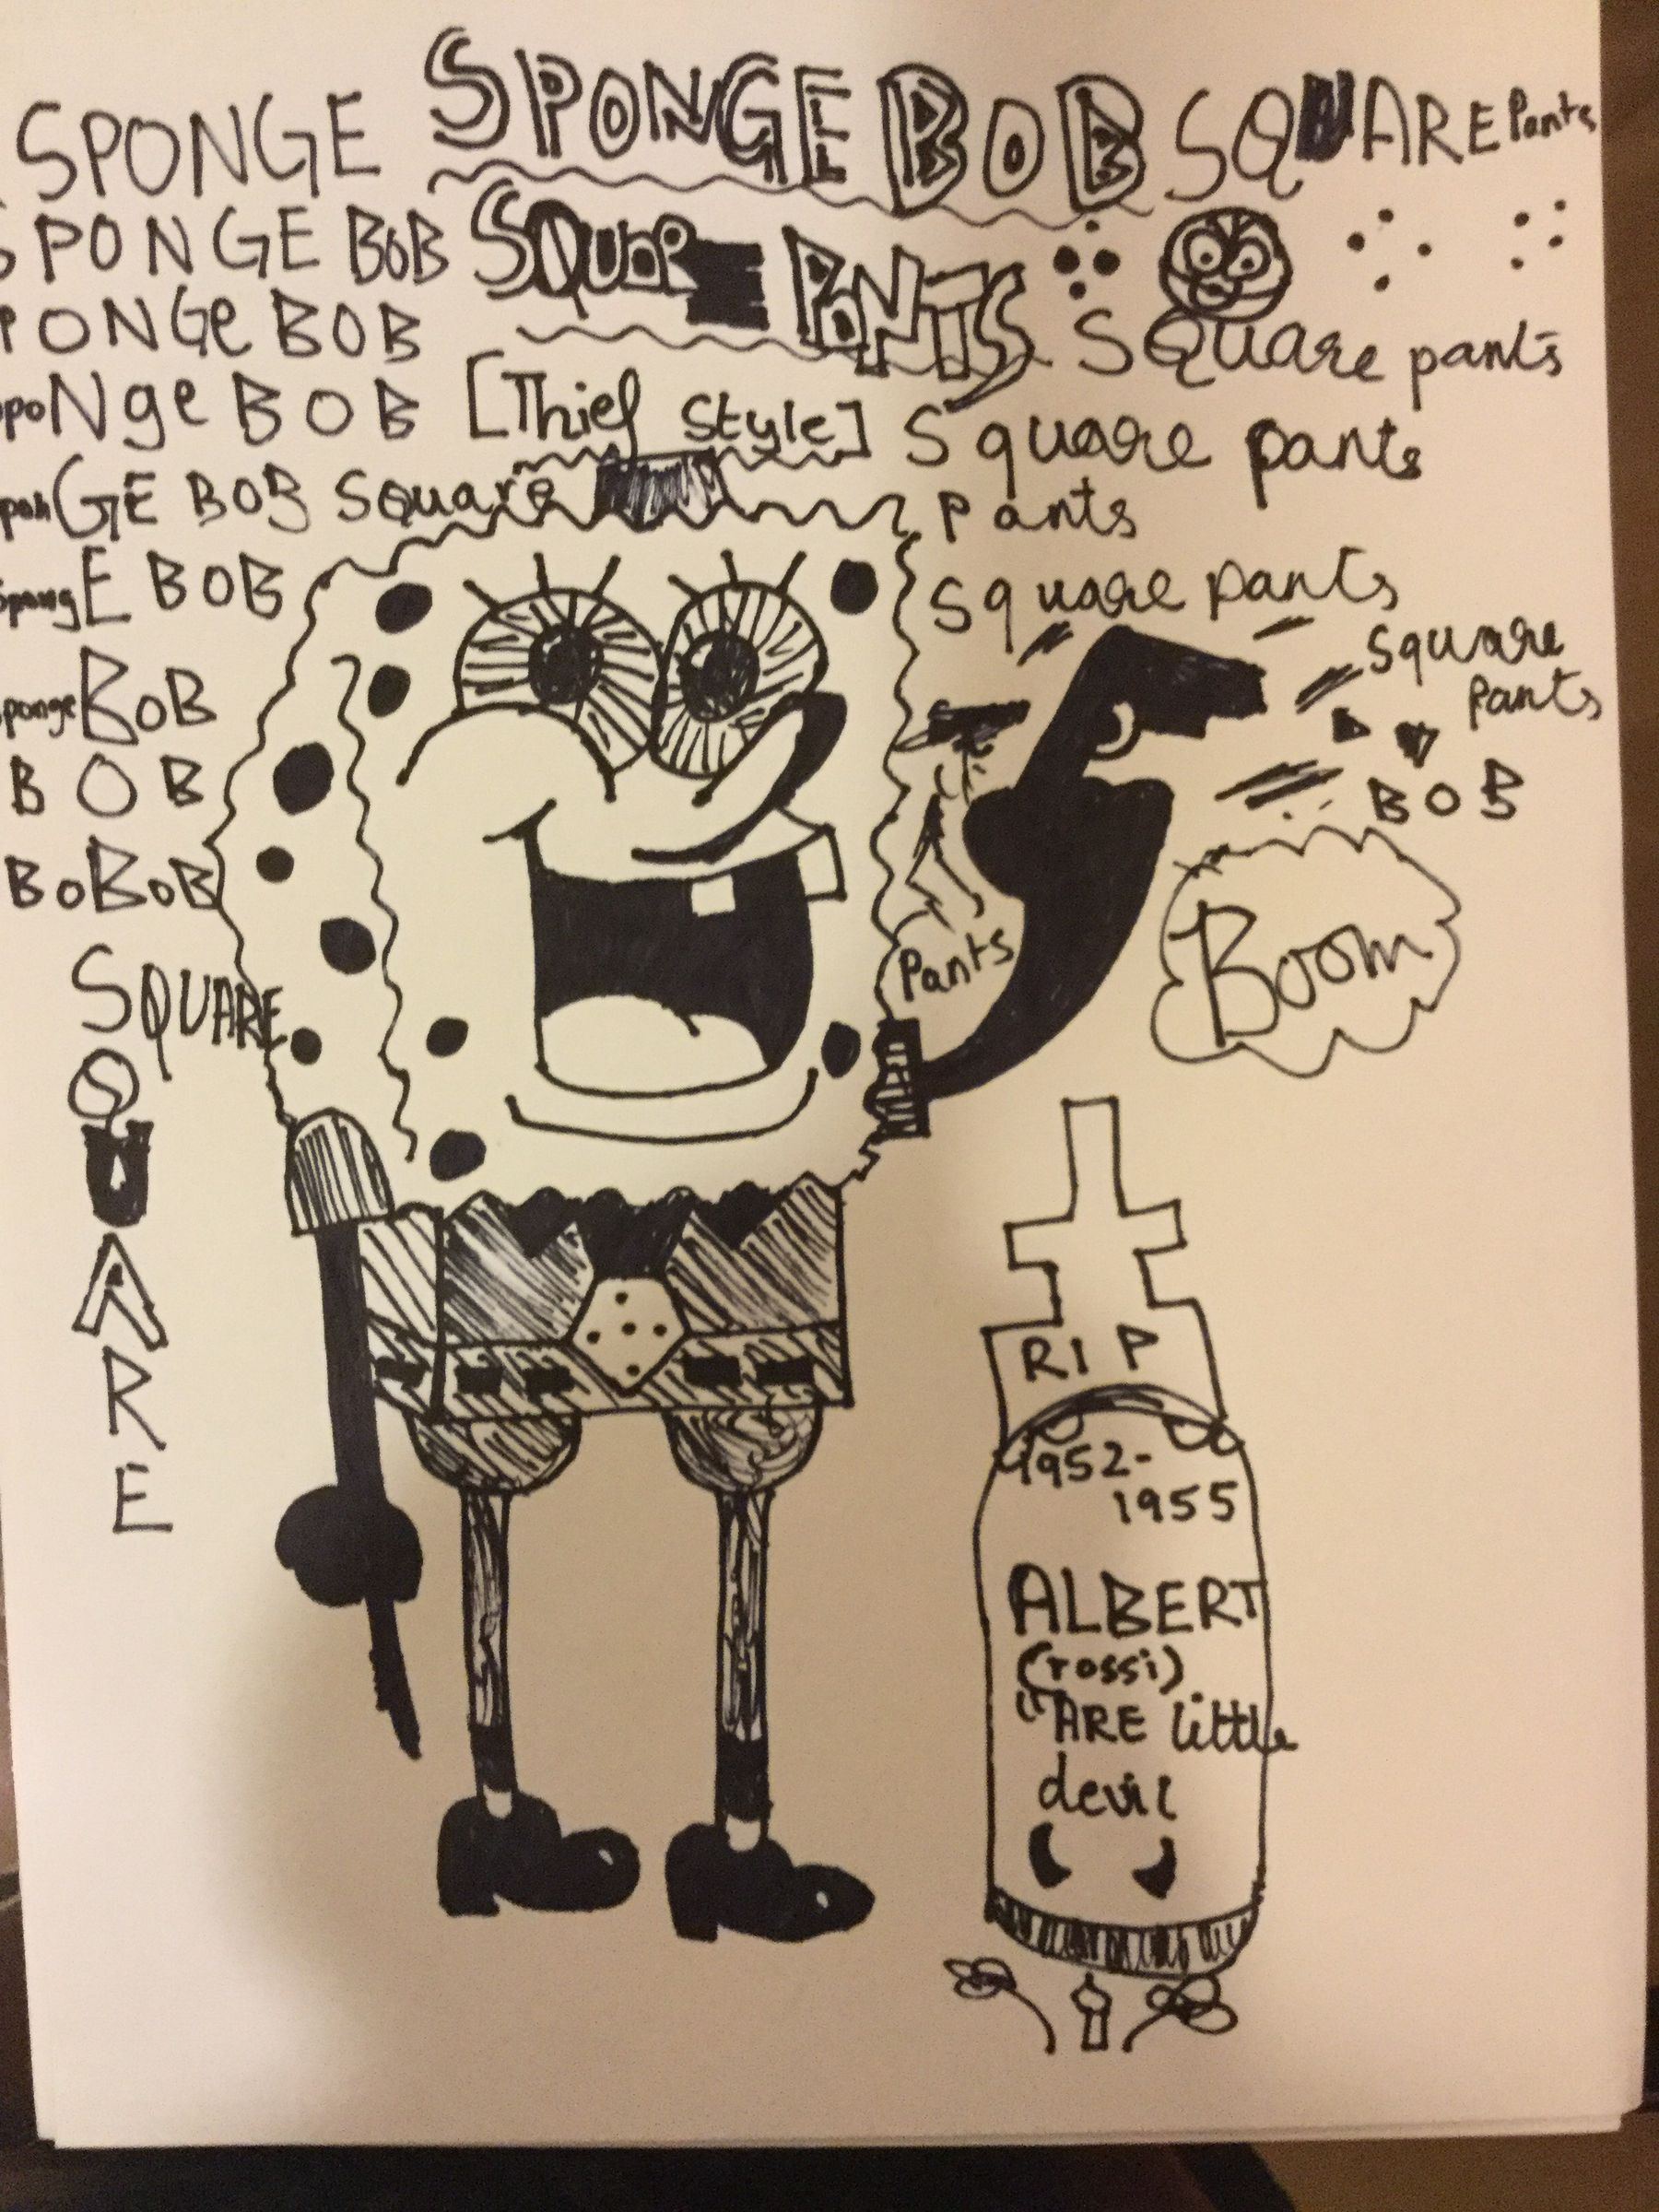 SPONGE SPONGE BOB SQUARE Pants
SPONGE BOB SQUARE PANTS
PONGe BOB Square pants
spoNge BOB [Thief Style] Square pants
sponGE BOB Square Pants
spongE BOB Square pants
Square
Pants
sponge BOB
BOB BOB
BOBOB
Pants
Boom
SQUARE
SQUARE
RIP
1952-
1955
ALBERT
(rossi)
"ARE little
devil